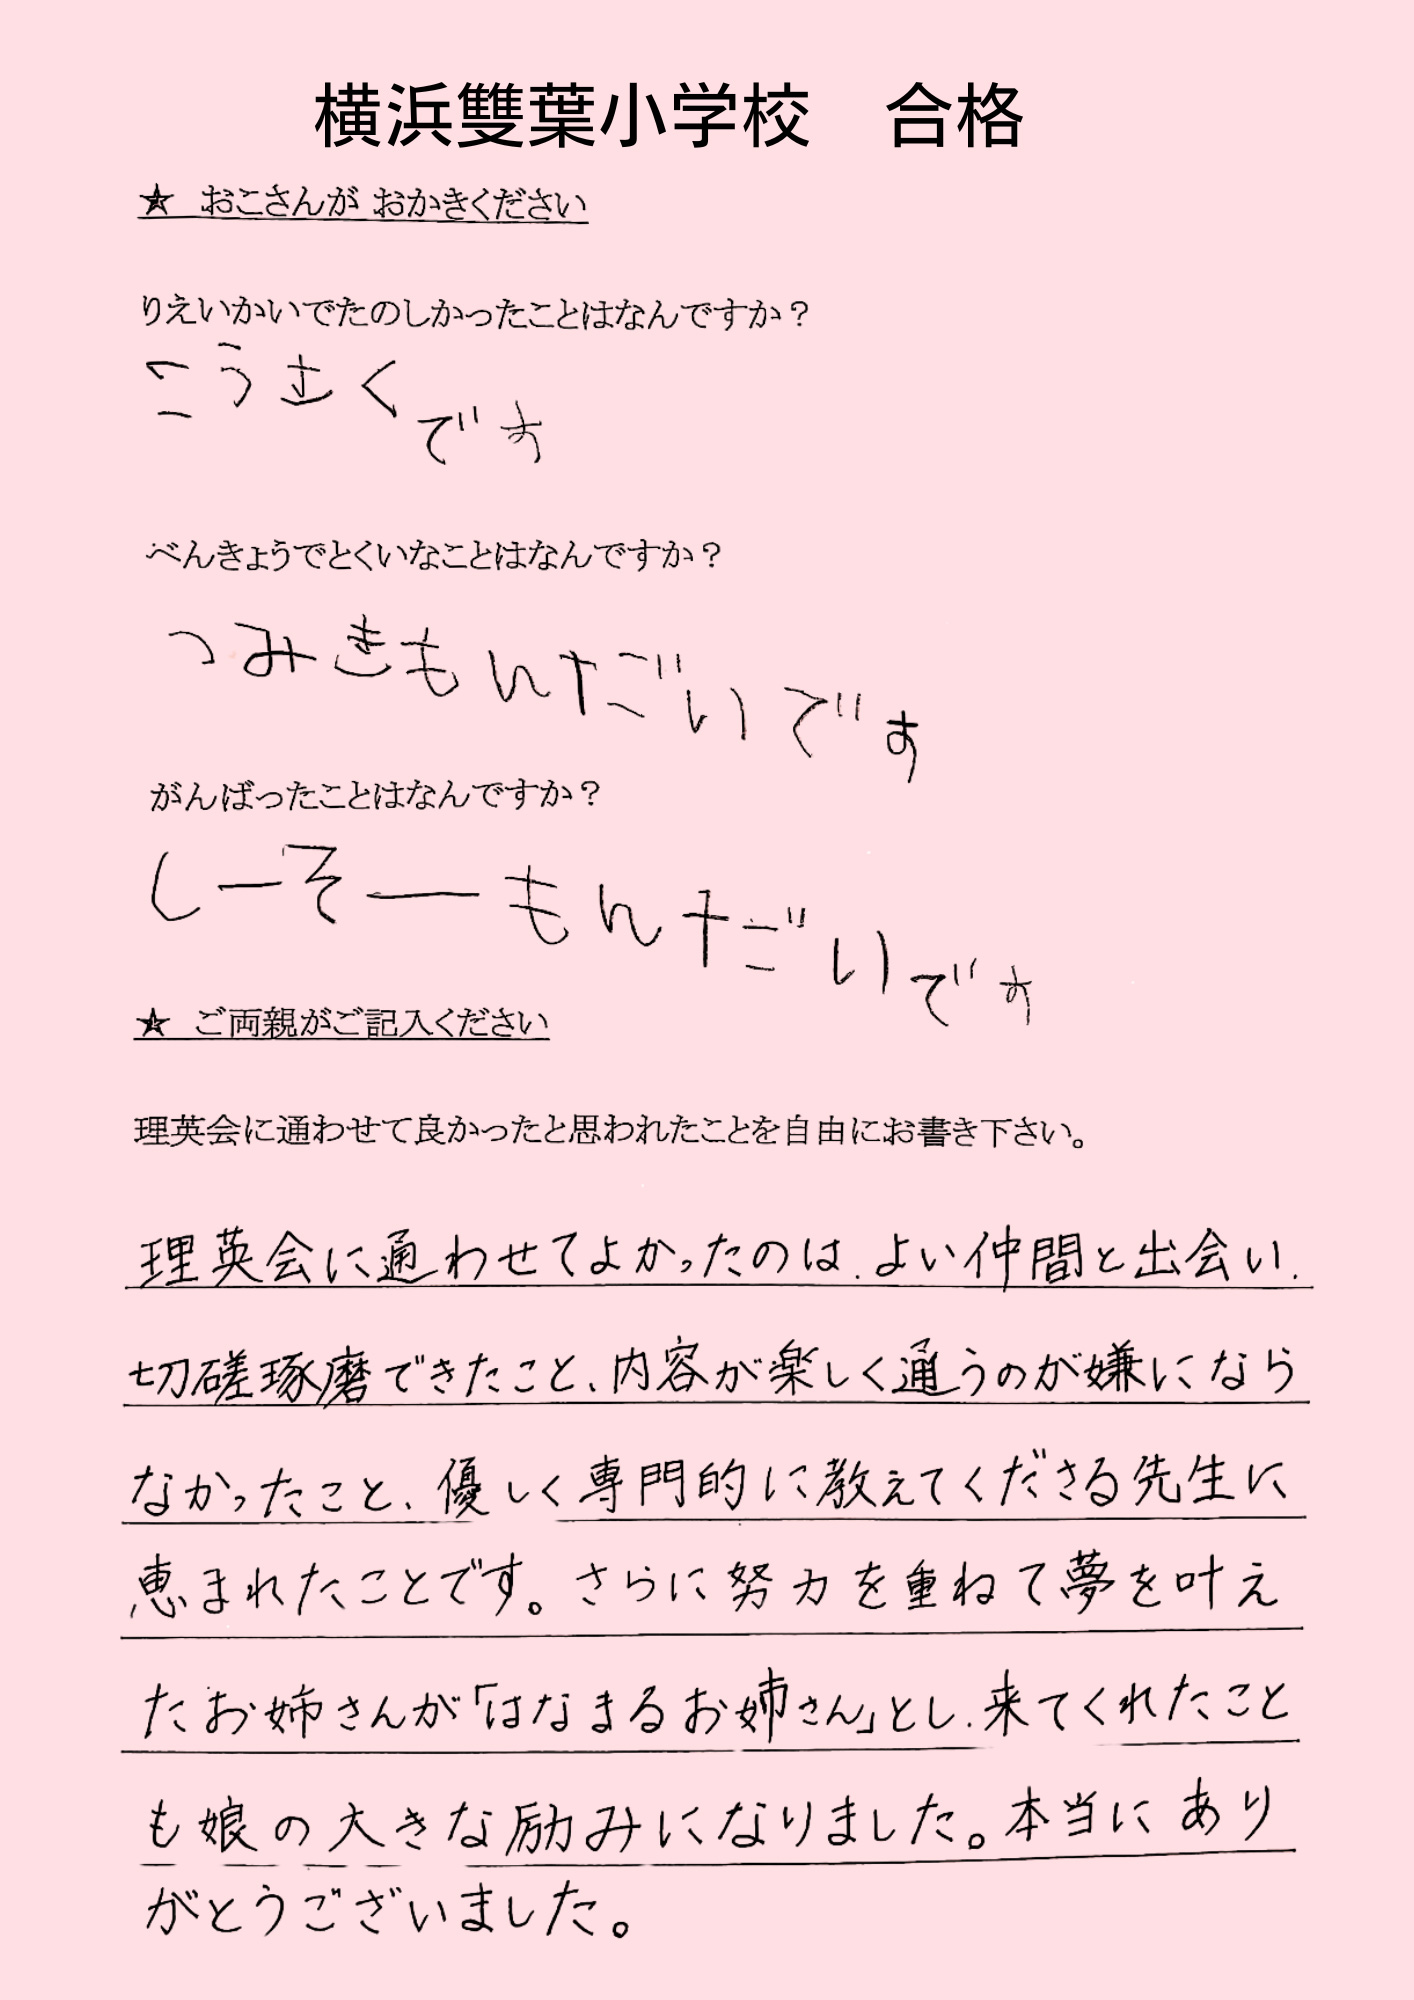 横浜雙葉小学校　合格
★ おこさんが おかきください
りえいかいでたのしかったことはなんですか？
こうさくです
べんきょうでとくいなことはなんですか？
つみきもんだいです
がんばったことはなんですか？
しーそーもんだいです
★ ご両親がご記入ください
理英会に通わせて良かったと思われたことを自由にお書き下さい。
理英会に通わせてよかったのは、よい仲間と出会い、
切磋琢磨できたこと、内容が楽しく通うのが嫌になら
なかったこと、優しく専門的に教えてくださる先生に
恵まれたことです。さらに努力を重ねて夢を叶え
たお姉さんが「はなまるお姉さん」とし、来てくれたこと
も娘の大きな励みになりました。本当にあり
がとうございました。